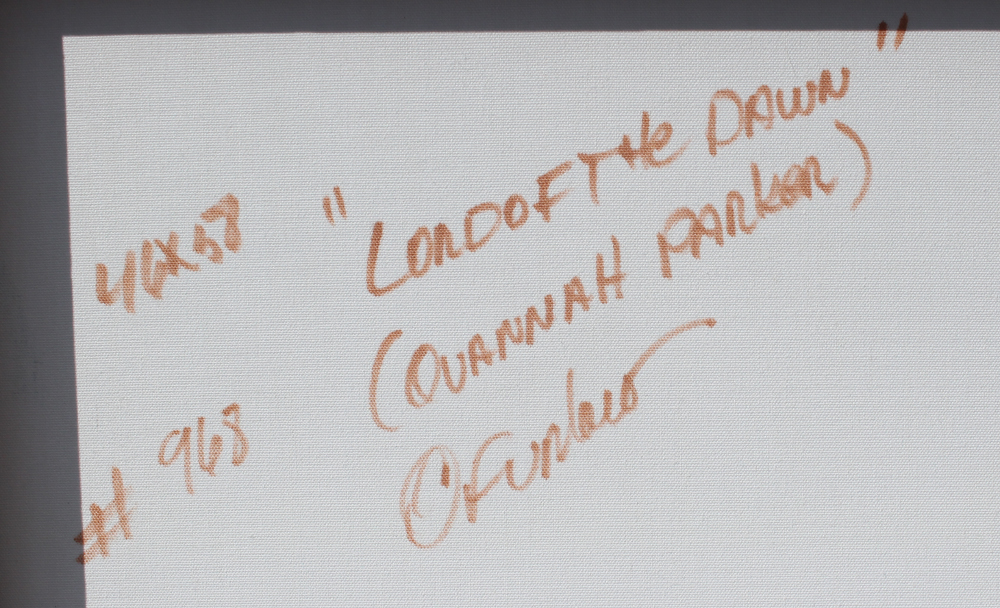 46X58
"LORD OF THE DAWN"
(QUANNAH PARKER)
# 968